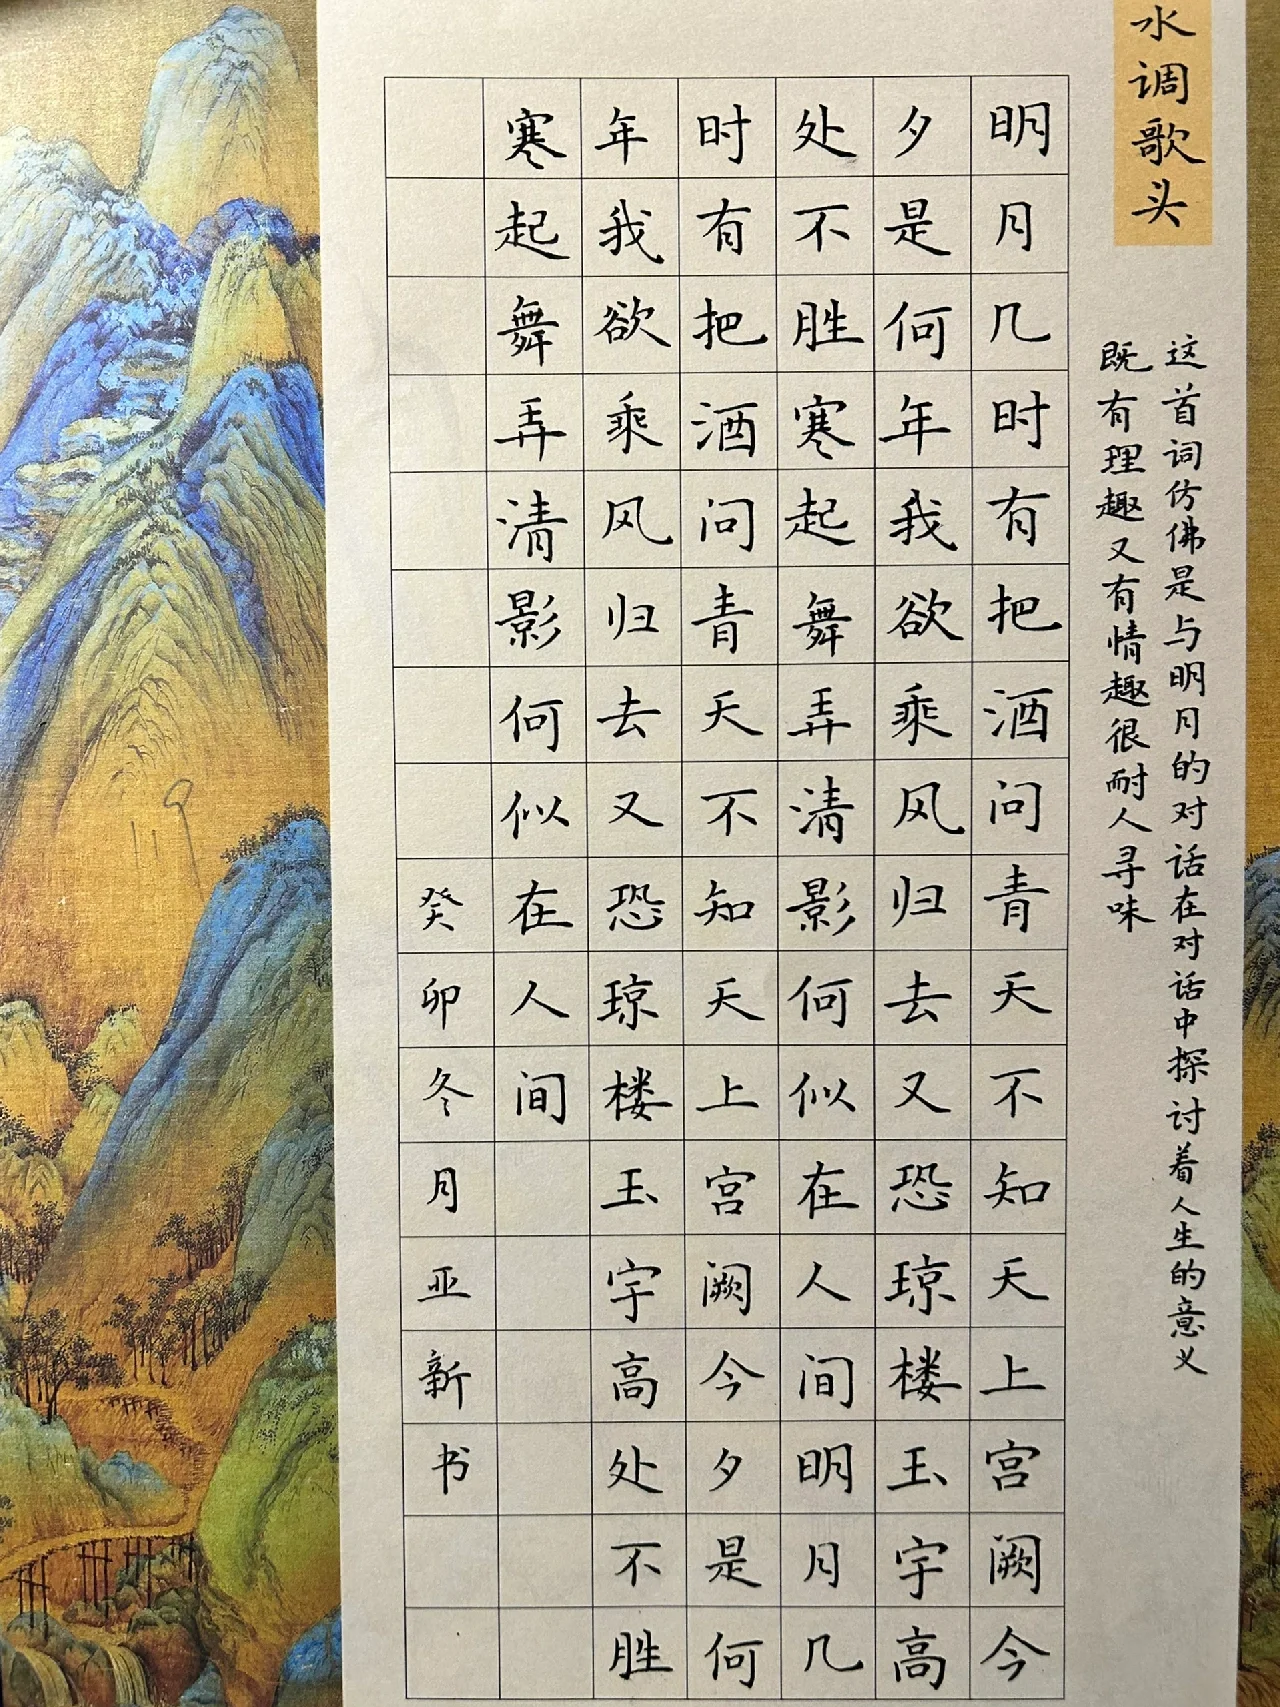 水调歌头
这首词仿佛是与明月的对话在对话中探讨着人生的意义
既有理趣又有情趣很耐人寻味
明月几时有把酒问青天不知天上宫阙今
夕是何年我欲乘风归去又恐琼楼玉宇高
处不胜寒起舞弄清影何似在人间明月几
时有把酒问青天不知天上宫阙今夕是何
年我欲乘风归去又恐琼楼玉宇高处不胜
寒起舞弄清影何似在人间
癸卯冬月亚新书